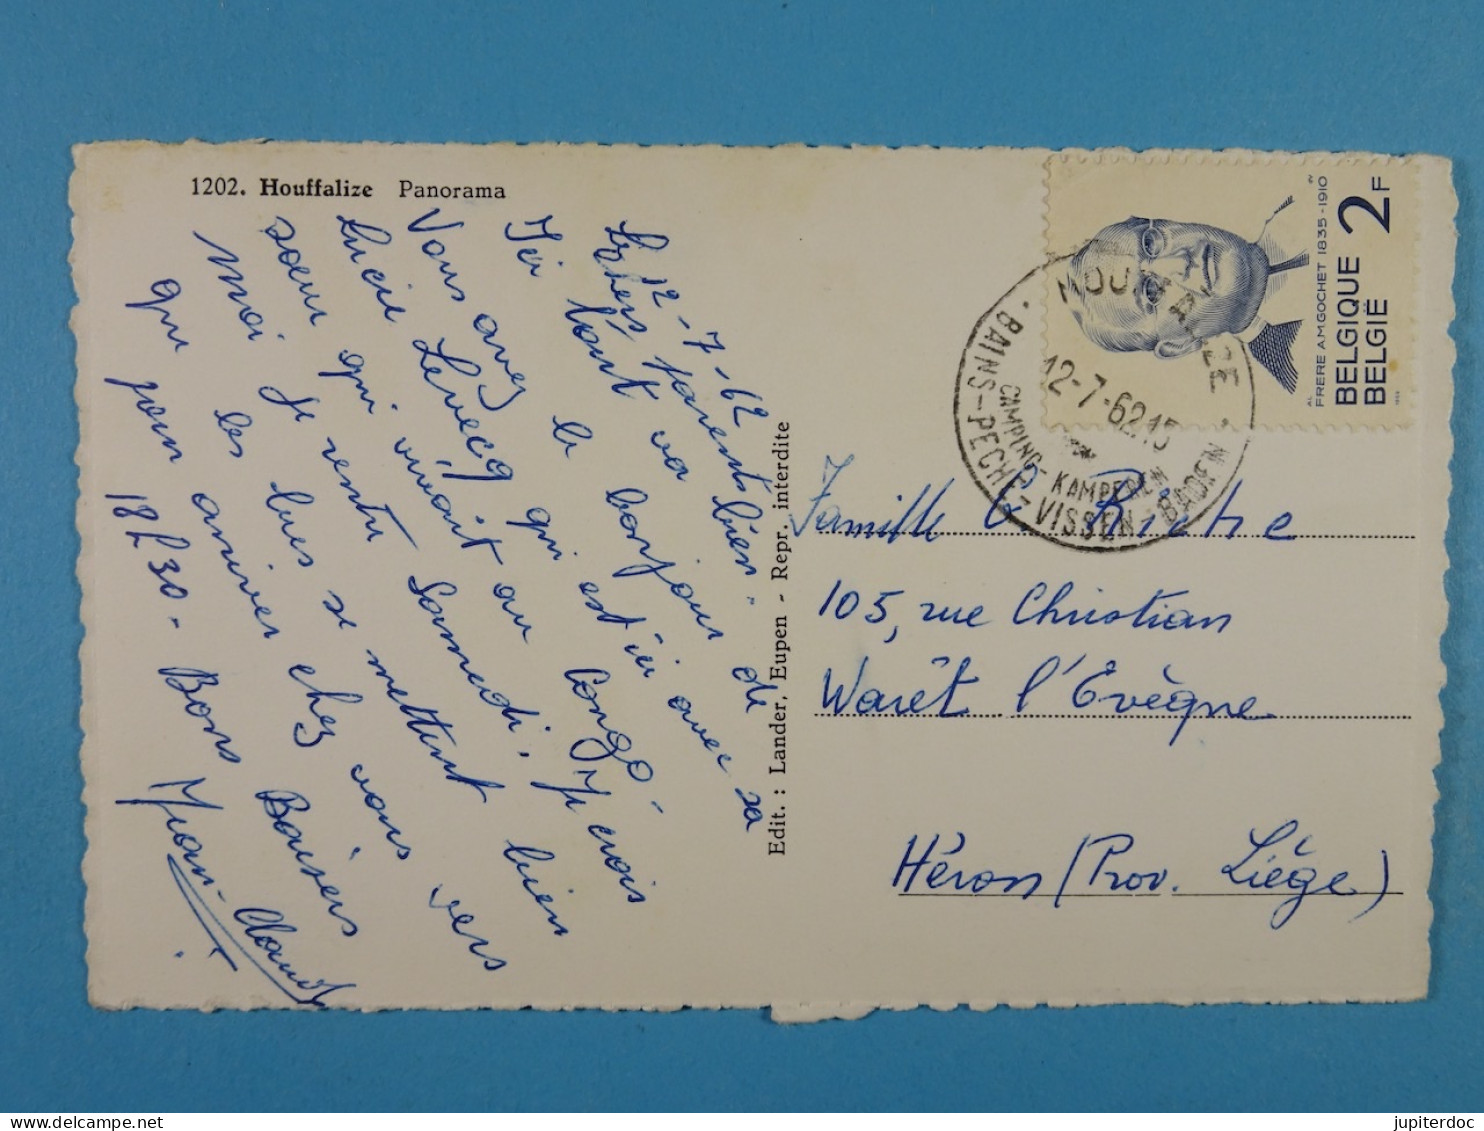 1202. Houffalize Panorama
12-7-62
Chers Parents
Ici tout va bien.
Vous avez le bonjour de
Lucie Lévecq qui est ici avec sa
sœur qui vivait au Congo.
Moi je rentre Samedi. Je crois
que les bus se mettent bien
pour arriver chez vous vers
18 h 30. Bons Baisers
Jean-Claude
Edit. : Lander, Eupen - Repr. interdite
BELGIQUE
BELGIË
2F
FRERE A.M. GOCHET 1835-1910
HOUFFALIZE
12-7-62 15
BAINS-PECHE
CAMPING-KAMPEREN
VISSEN-BADEN
Famille
105, rue Christian
Warêt l'Evèque
Héron (Prov. Liège)
jupiterdoc